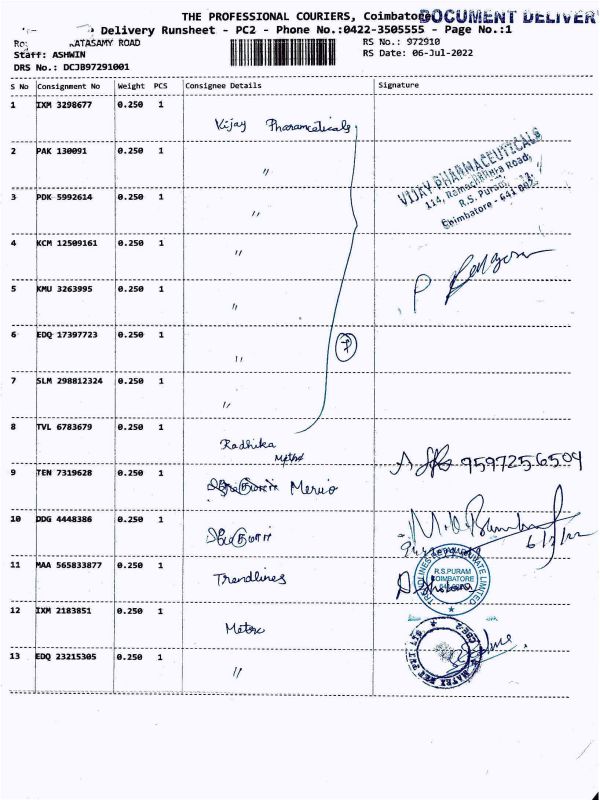 THE PROFESSIONAL COURIERS, Coimbatore
DOCUMENT DELIVER
Delivery Runsheet - PC2 - Phone No.:0422-3505555 - Page No.:1
KATASAMY ROAD
RS No.: 972910
Staff: ASHWIN
RS Date: 06-Jul-2022
DRS No.: DCJB97291001
S No Consignment No Weight PCS Consignee Details Signature
1 IXM 3298677 0.250 1 Vijay Pharamceticals
2 PAK 130091 0.250 1 "
VIJAY PHARMACEUTICALS
114, Ramachandra Road,
R.S. Puram,
Coimbatore - 641 002
3 PDK 5992614 0.250 1 "
4 KCM 12509161 0.250 1 "
P
5 KMU 3263995 0.250 1 "
6 EDQ 17397723 0.250 1 "
7
7 SLM 298812324 0.250 1 "
8 TVL 6783679 0.250 1 Radhika
9597256504
9 TEN 7319628 0.250 1
10 DDG 4448386 0.250 1
6/7/22
11 MAA 565833877 0.250 1 Trendlines
R.S.PURAM
COIMBATORE
12 IXM 2183851 0.250 1 Matex
13 EDQ 23215305 0.250 1 "